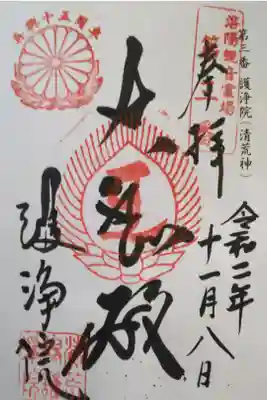 第三番 護浄院(清荒神)
洛陽観音霊場
第三番
奉拝
令和二年
十一月八日
大悲殿
護浄院